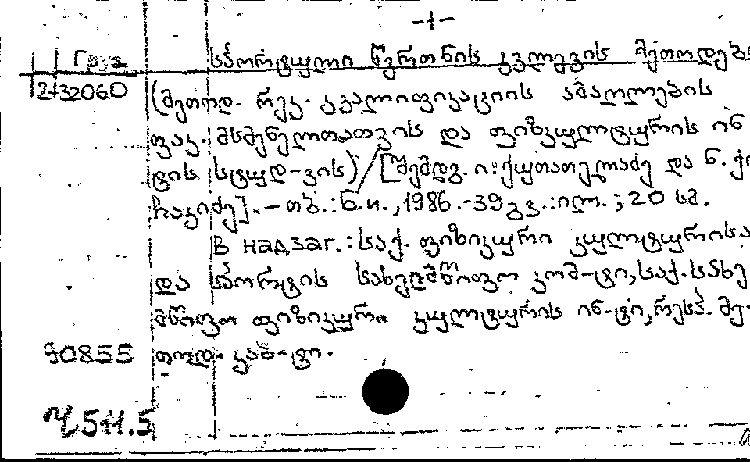 -1-
Груз სპორტული წვრთნის კვლევის მეთოდები
2-32060 (მეთოდ. რეკ. კვალიფიკაციის ამაღლების
ფაკ. მსმენელთათვის და ფიზკულტურის ინ
ტის სტუდ-ვის)/[შემდგ. ი. ქუთათელაძე და ნ.
ჩაკიძე].-თბ.:ბ.ი.,1986.-39გვ.:ილ.;20 სმ.
В надзаг.:საქ. ფიზიკური კულტურისა
და სპორტის სახელმწიფო კომ-ტი,საქ.სახე
მწიფო ფიზიკური კულტურის ინ-ტი,რესპ. მე-
90855 თოდ. კაბ-ტი.
Ч511.5